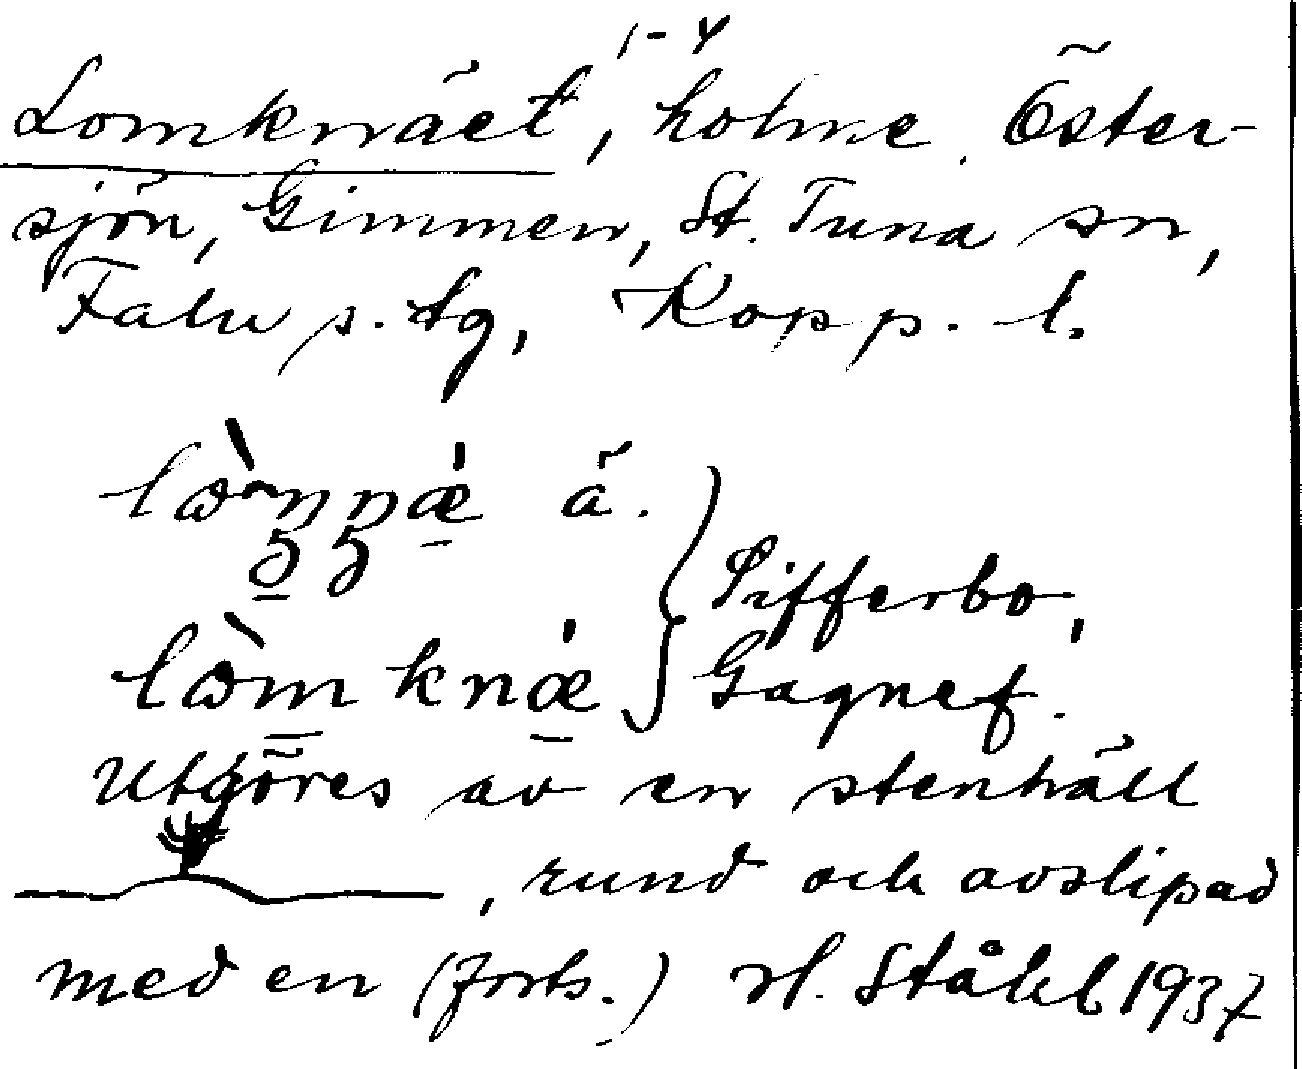 1-4
Lomknäet, holme. Öster-
sjön, Gimmen, St. Tuna sn,
Falu s. tg, Kopp. l.
ä.
Sifferbo,
Gagnef.
Utgöres av en stenhäll
, rund och avslipad
med en (forts.) H. Ståhl 1937